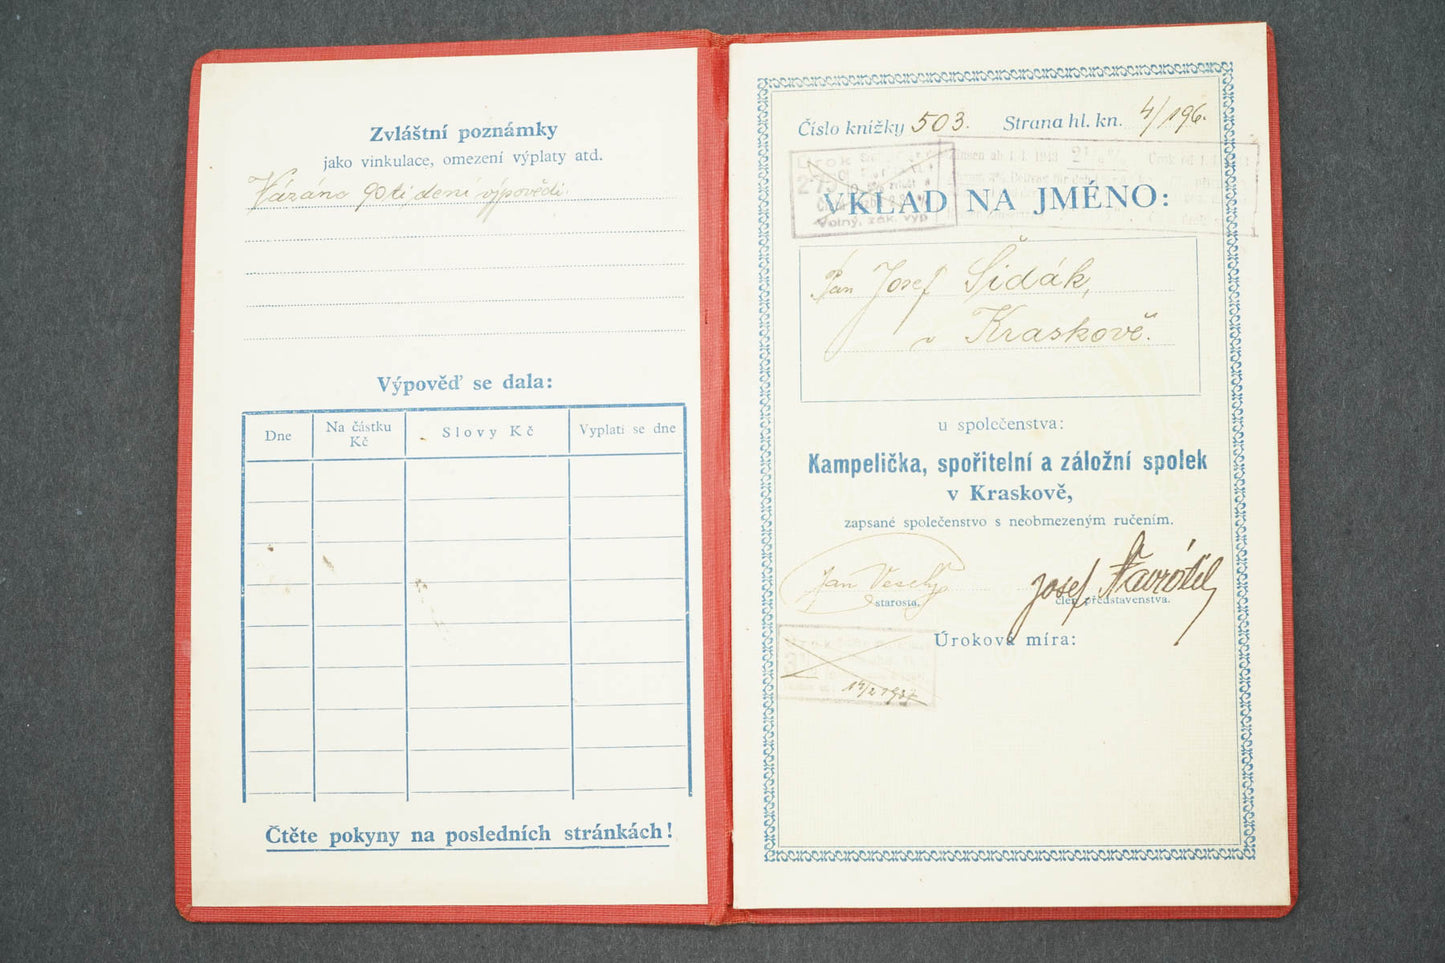 Zvláštní poznámky
jako vinkulace, omezení výplaty atd.
Vázáno 90ti denní výpovědi.
Výpověď se dala:
Dne
Na částku Kč
Slovy Kč
Vyplatí se dne
Čtěte pokyny na posledních stránkách!
Číslo knížky 503. Strana hl. kn. 4/196.
Úrok
Volný, zák. výp
ab 1. 1. 1943 2
Úrok od 1.
VKLAD NA JMÉNO:
Pan Josef Šidák,
v Kraskově.
u společenstva:
Kampelička, spořitelní a záložní spolek
v Kraskově,
zapsané společenstvo s neobmezeným ručením.
Jan Veselý
starosta.
Josef Navrátil
člen představenstva.
Úroková míra: